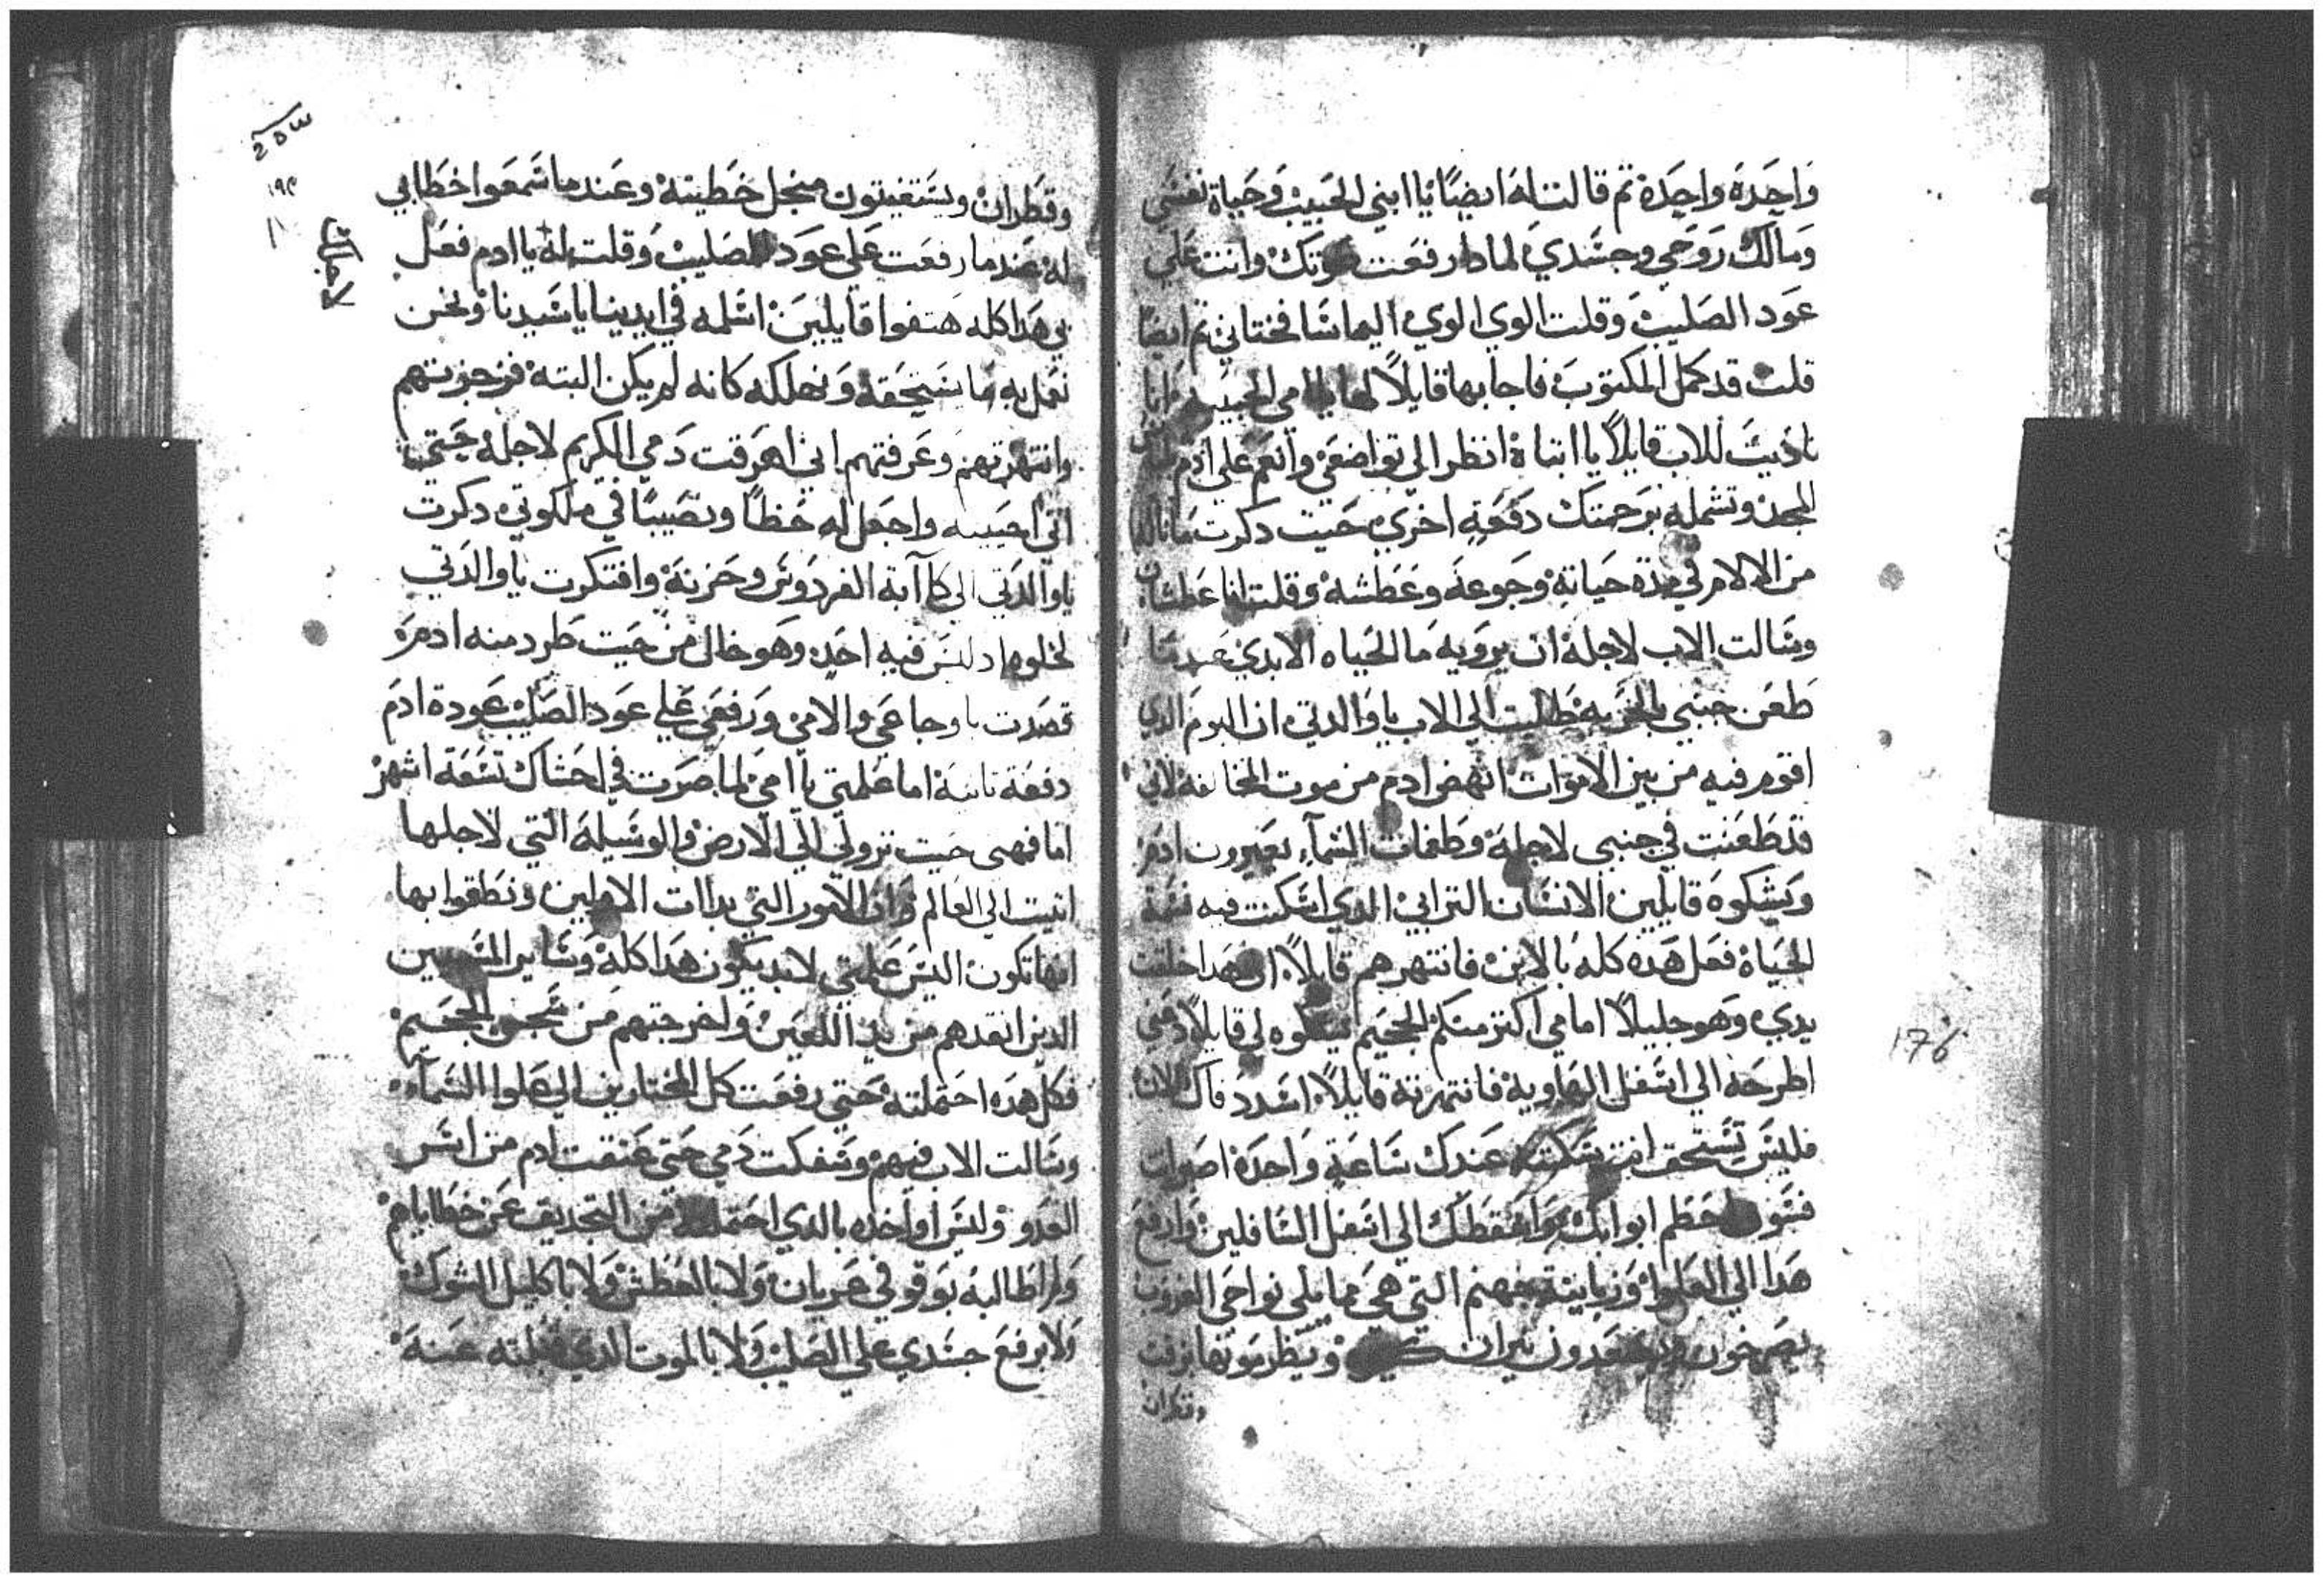 واحدة واحدة تم قالت له ايضًا يا ابني الحبيب وحياة نفسي
ومالك روحي وجسدي لمادا رفعت صوتك وانت علي
عود الصليب وقلت الوي الوي اليما شا فختاني تم ايضًا
قلت قد كمل المكتوب فاجابها قايلاً لها يا امي الحبيبه وانا
ناديت للاب قايلاً يا ابتاة انظر الي تواضعي وانعم علي ادم
المجد وتشمله برحمتك دفعة اخري حيت دكرت ما ناله
من الالام في مدة حياته وجوعه وعطشه وقلت انا عطشان
وسالت الاب لاجلة ان يرويه ما الحياه الابدي عندما
طعن جنبي بالحربه طلبت الي الاب يا والدتي ان اليوم الدي
اقوم فيه من بين الاموات انهض ادم من موت المخالفه لاني
قد طعنت في جنبي لاجلة وطغمات السمآء يعيرون ادم
ويشكوه قايلين الانسان الترابي الدي اسكنت فيه نسمة
الحياة فعل هده كله بالابن فانتهرهم قايلاً ان هدا خلقت
يدي وهو جليلاً امامي اكتر منكم الجحيم يشكوه لي قايلاً دعني
اطرحه الي اسفل الهاوية فانتهرته قايلاً اسدد فاك الان
فليس تستحق انت عندك ساعة واحدة اصوات
فسوف احطم ابوابك واسقطك الي اسفل السافلين وارفع
هدا الي العلوا وزبانية جهنم التي هي مما يلي نواحي الغروب
يصرخون نيران وتنظر موتها بزفت
وقطران
وقطران ويستغيتون منجل خطيته وعندما سمعوا خطابي
له عندما رفعت علي عود الصليب وقلت له يا ادم فعل
بي هدا كله هتفوا قايلين اسلمه في ايدينا يا سيدنا ونحن
نعمل به ما يستحقه ونهلكه كانه لم يكن البته فزجرتهم
وانتهرتهم وعرفتهم اني اهرقت دمي الكريم لاجله حتي
انني احييه واجعل له حظاً ونصيبًا في ملكوتي دكرت
يا والدتي الي كآبة الفردوس وحزنة وافتكرت يا والدتي
لخلوه اد ليس فيه احد وهو خال من حيت طرد منه ادم
قصدت باوجاعي والامي ورفعي علي عود الصليب عودة ادم
دفعة تانية اما علمتي يا امي لما صرت في احشاك تسعة اشهر
اما فهمي حيت نزولي الي الارض والوسيلة التي لاجلها
اتيت الي العالم وان الامور التي بدات الاولين ونطقوا بها
انها تكون اليس علمتي لابد يكون هدا كلة وساير المسبيين
الدين انقدهم من يد اللعين واخرجتهم من سجن الجحيم
فكل هده احتملته حتي رفعت كل المختارين الي علوا السمآء
وسالت الاب فيهم وسفكت دمي حتي عتقت ادم من اسر
العدو وليس اواخده بالدي احتملته من التجديف عن خطاياهم
ولم اطالبه بوقوفي عريان ولا بالعطش ولا باكليل الشوك
ولا برفع جسدي علي الصليب ولا بالموت الدي قبلته عنه
253
١٩٩
176